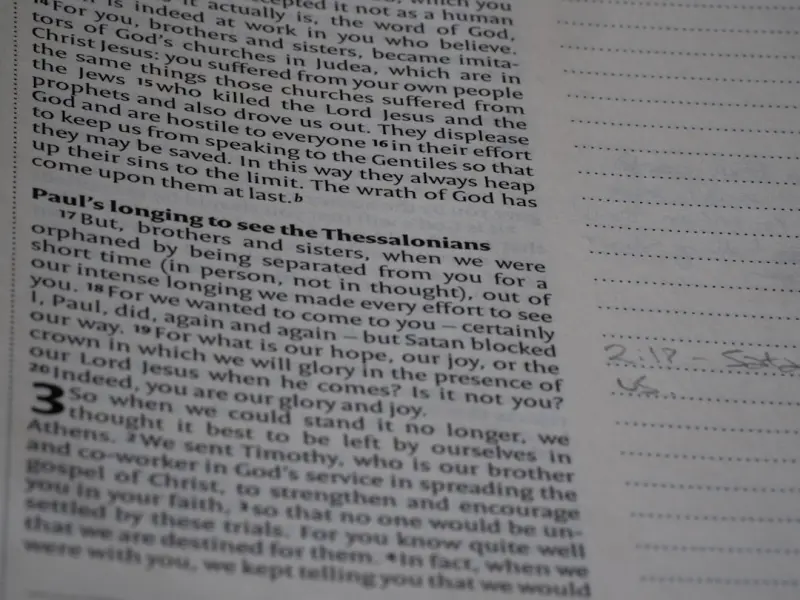 cepted it not as a human
it actually is, the word of God,
is indeed at work in you who believe.
14 For you, brothers and sisters, became imita-
tors of God's churches in Judea, which are in
Christ Jesus: you suffered from your own people
the same things those churches suffered from
the Jews 15 who killed the Lord Jesus and the
prophets and also drove us out. They displease
God and are hostile to everyone 16 in their effort
to keep us from speaking to the Gentiles so that
they may be saved. In this way they always heap
up their sins to the limit. The wrath of God has
come upon them at last.b
Paul's longing to see the Thessalonians
17 But, brothers and sisters, when we were
orphaned by being separated from you for a
short time (in person, not in thought), out of
our intense longing we made every effort to see
you. 18 For we wanted to come to you – certainly
I, Paul, did, again and again – but Satan blocked
our way. 19 For what is our hope, our joy, or the
crown in which we will glory in the presence of
our Lord Jesus when he comes? Is it not you?
20 Indeed, you are our glory and joy.
3 So when we could stand it no longer, we
thought it best to be left by ourselves in
Athens. 2 We sent Timothy, who is our brother
and co-worker in God's service in spreading the
gospel of Christ, to strengthen and encourage
you in your faith, 3 so that no one would be un-
settled by these trials. For you know quite well
that we are destined for them. 4 In fact, when we
were with you, we kept telling you that we would
2:18 - Sata
us..